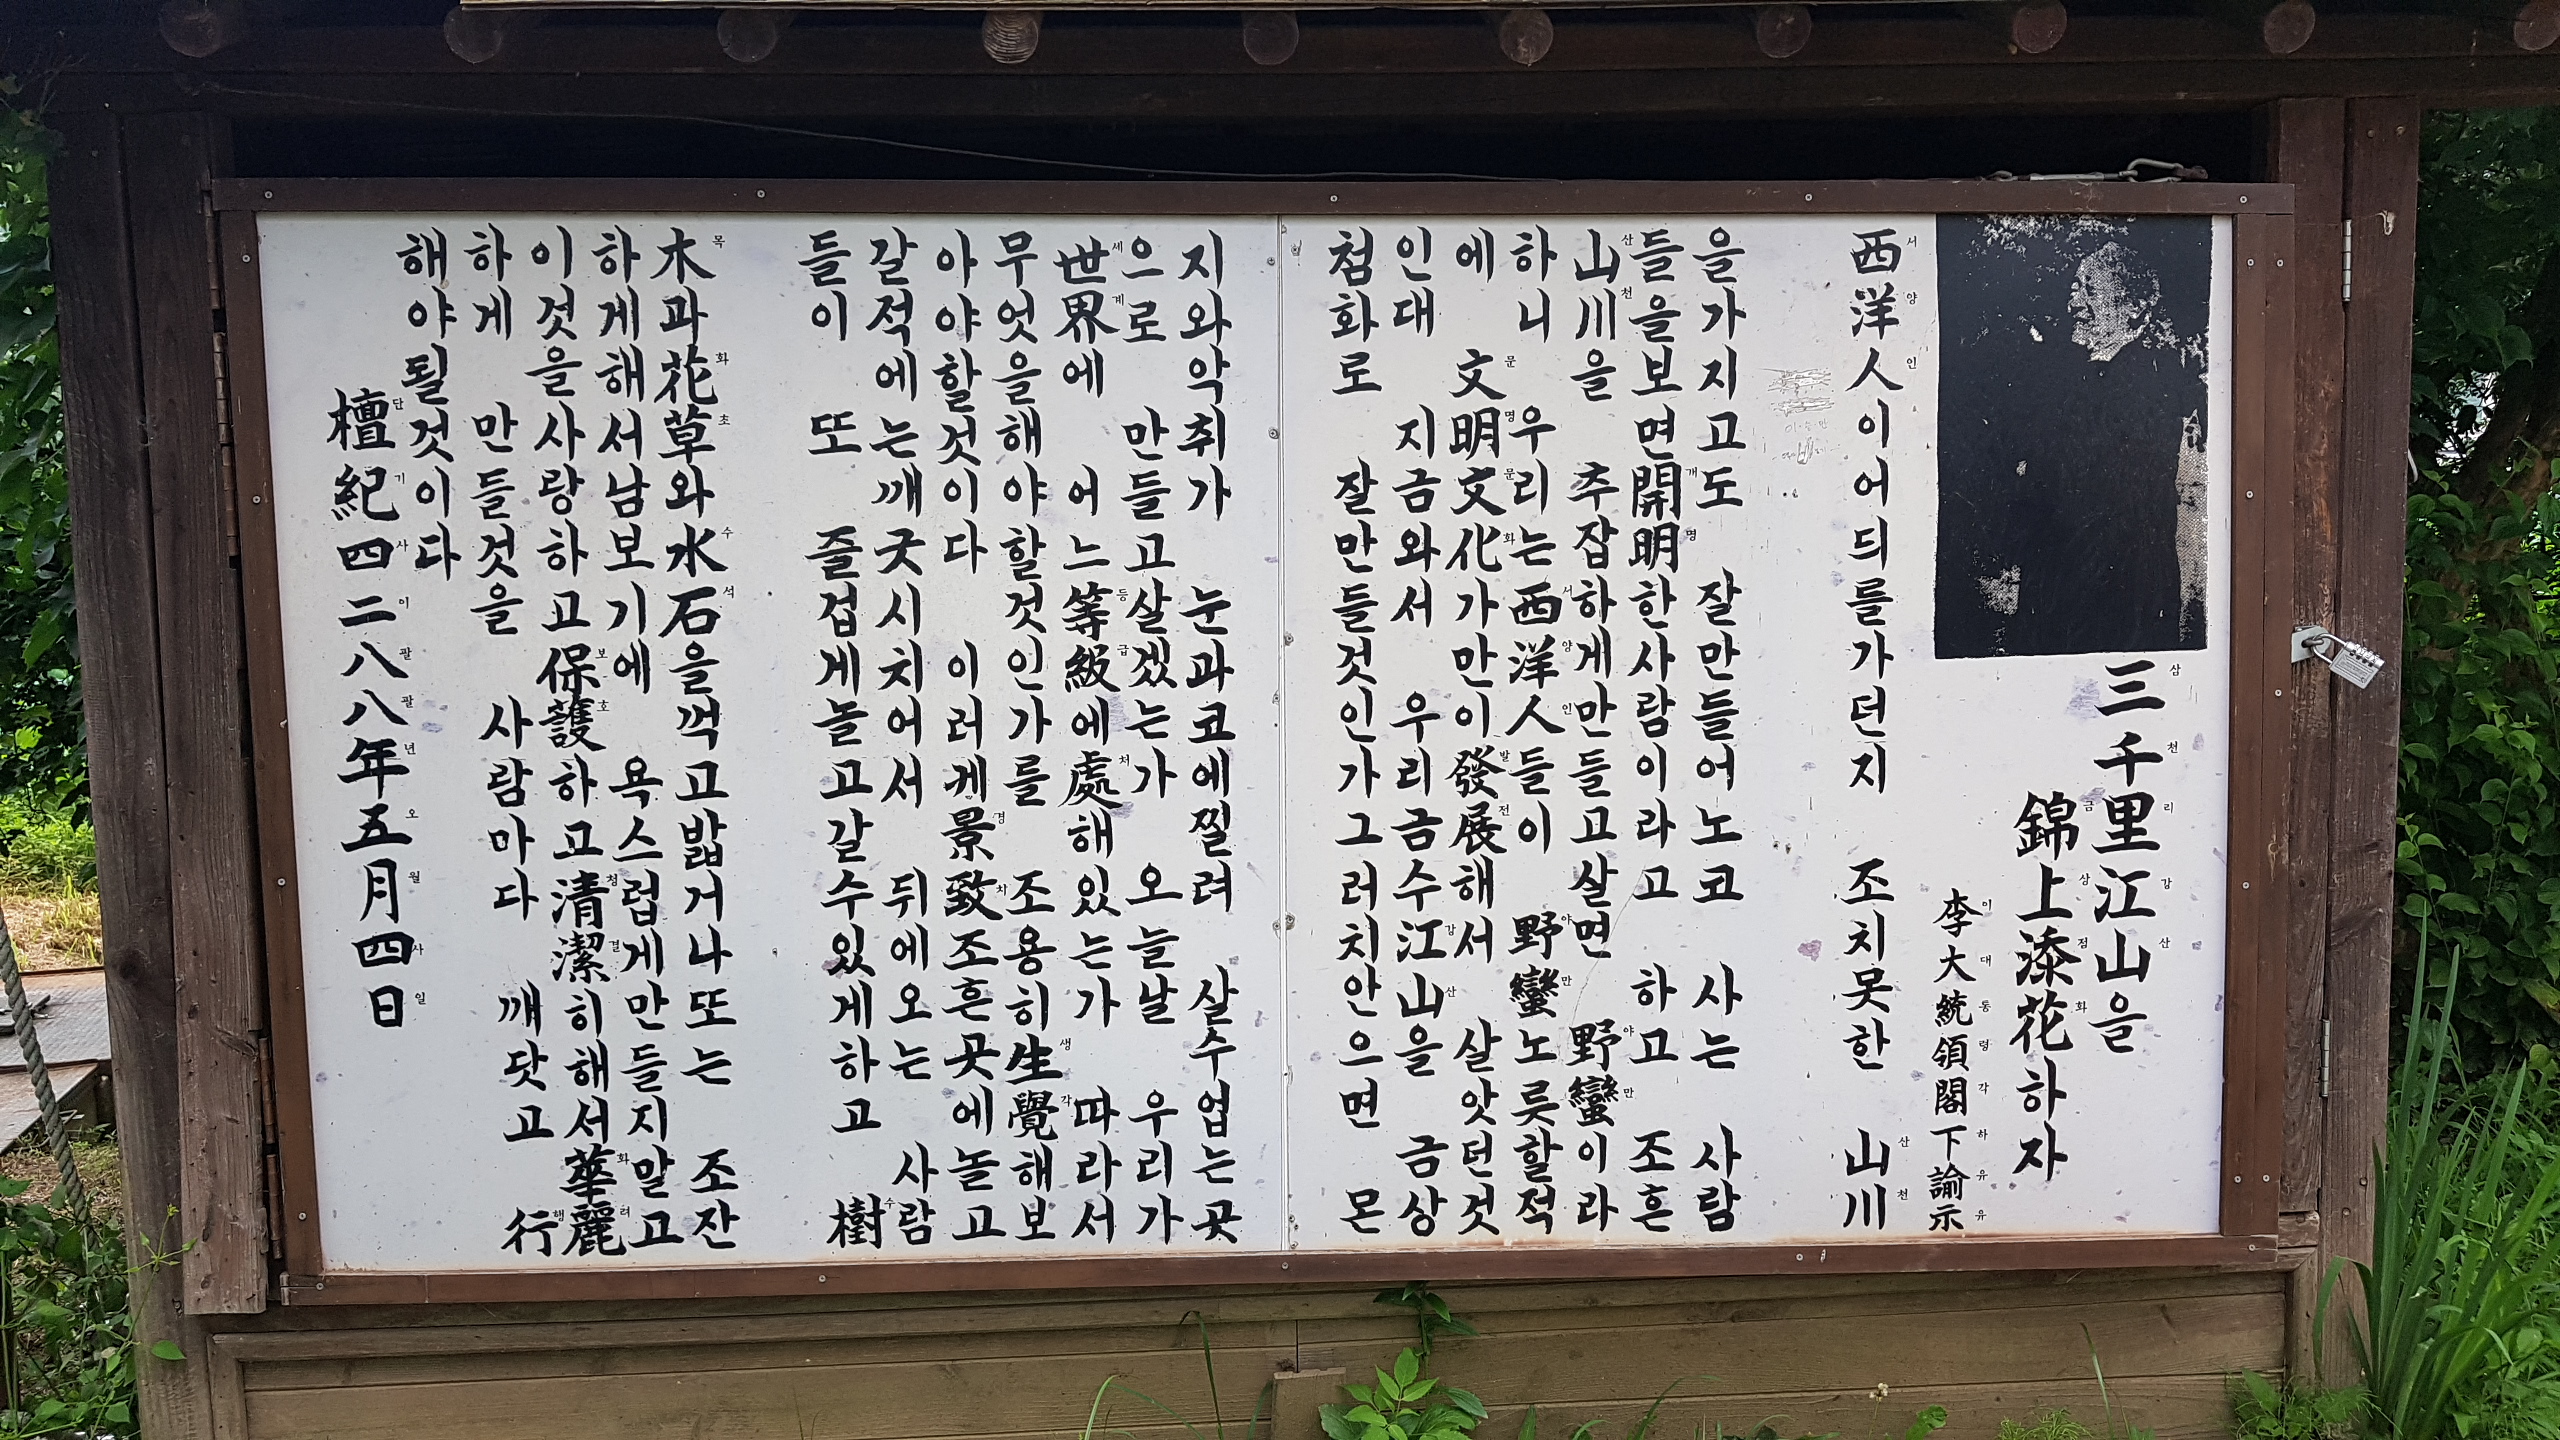 三千里江山을
錦上添花하자
李大統領閣下諭示
西洋人이어듸를가던지 조치못한 山川
을가지고도 잘만들어노코 사는 사람
들을보면開明한사람이라고 하고 조흔
山川을 추잡하게만들고살면 野蠻이라
하니 우리는西洋人들이 野蠻노릇할적
에 文明文化가만이發展해서 살앗던것
인대 지금와서 우리금수江山을 금상
첨화로 잘만들것인가그러치안으면 몬
지와악취가 눈과코에찔려 살수업는곳
으로 만들고살겠는가 오늘날 우리가
世界에 어느等級에處해있는가 따라서
무엇을해야할것인가를 조용히生覺해보
아야할것이다 이러케景致조흔곳에놀고
갈적에는깨긋시치어서 뒤에오는 사람
들이 또 즐섭게놀고갈수있게하고 樹
木과花草와水石을꺽고밟거나또는 조잔
하게해서남보기에 욕스럽게만들지말고
이것을사랑하고保護하고淸潔히해서華麗
하게 만들것을 사람마다 깨닷고 行
해야될것이다
檀紀四二八八年五月四日